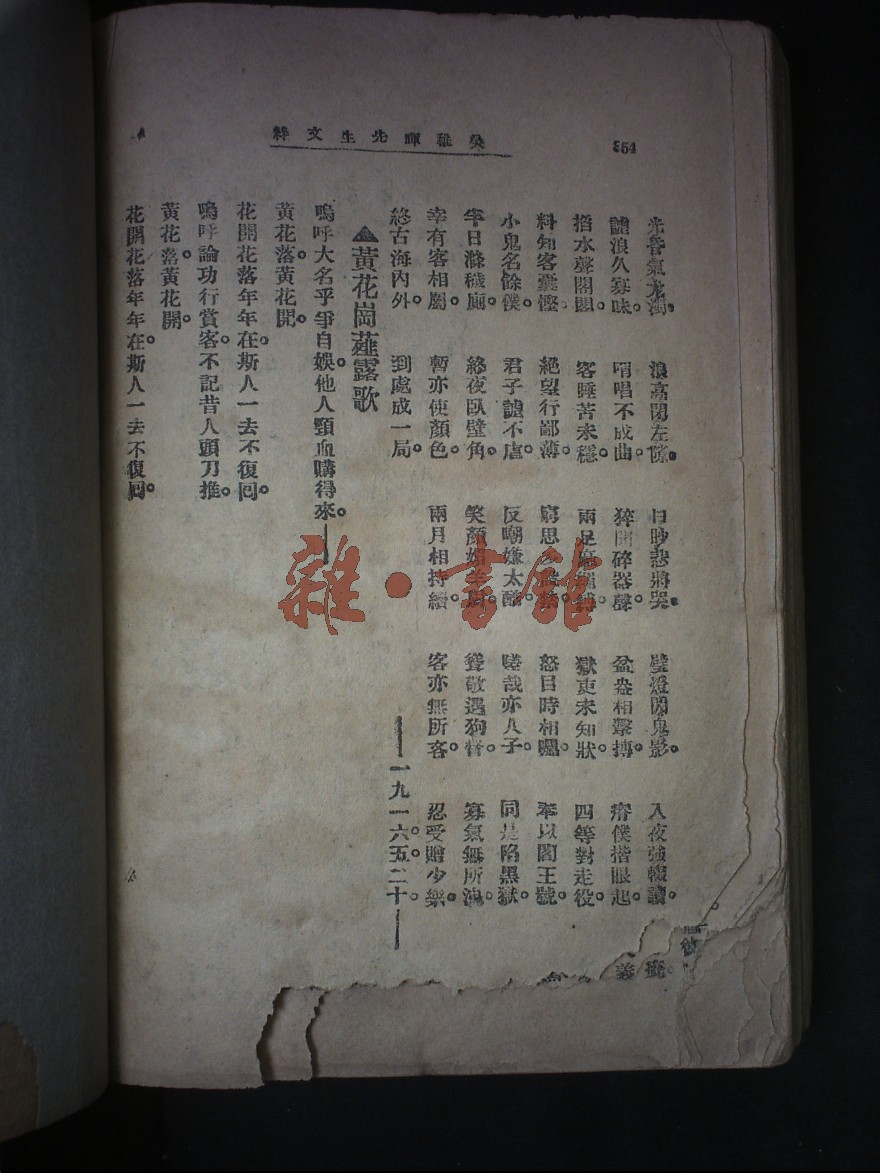 354
吳稚暉先生文粹
光昏氣尤濁。 浪高閉左隙。 日眇悲將哭。 壁燈閃鬼影。 入夜強輟讀。
謔浪久寡味。 唱不成曲。 猝聞碎器聲。 盆盎相擊搏。 僕揩眼起。
水聲閣閣。 客睡苦未穩。 兩足縛。 獄吏未知狀。 四等對走役。
料知客囊慳。 絕望行鄙薄。 窮思 怒目時相矚。 奉以閻王號。
小鬼名餘僕。 君子謔不虐。 反嘲嫌太酷。 嗟哉亦人子。 同是陷黑獄。
日滌穢廁。 終夜臥壁角。 笑顏媚羊廚。 聳敬遇狗督。 寡氣無所洩。
幸有客相屬。 暫亦使顏色。 兩月相持續。 客亦無所客。 忍受贈少樂。
終古海內外。 到處成一局。 ——一九一六。五。二十。——
▲黃花崗薤露歌
嗚呼大名乎爭自娛。他人頸血購得來。——
黃花落黃花開。
花開花落年年在。斯人一去不復回。
嗚呼論功行賞客。不記昔人頭刀推。
黃花落黃花開。
花開花落年年在。斯人一去不復回。
雜·書館